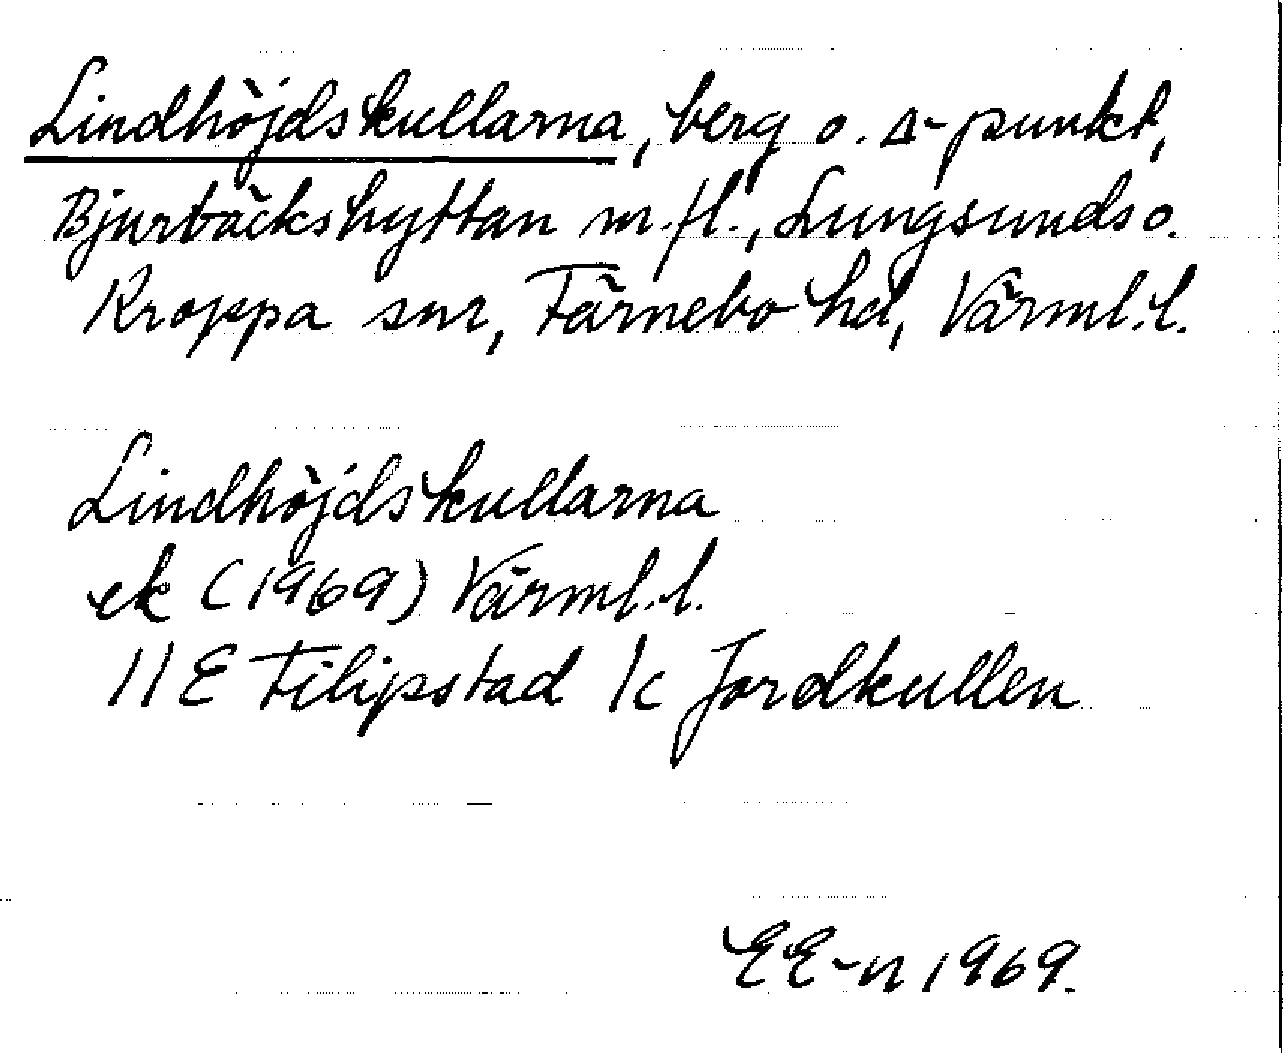 Lindhöjdskullarna, berg o. Δ-punkt,
Bjurbäckshyttan m.fl., Lungsunds o.
Kroppa snr, Färnebo hd, Värml.l.
Lindhöjdskullarna
ek (1969) Värml.l.
11E Filipstad 1c Jordkullen
EE-n 1969.